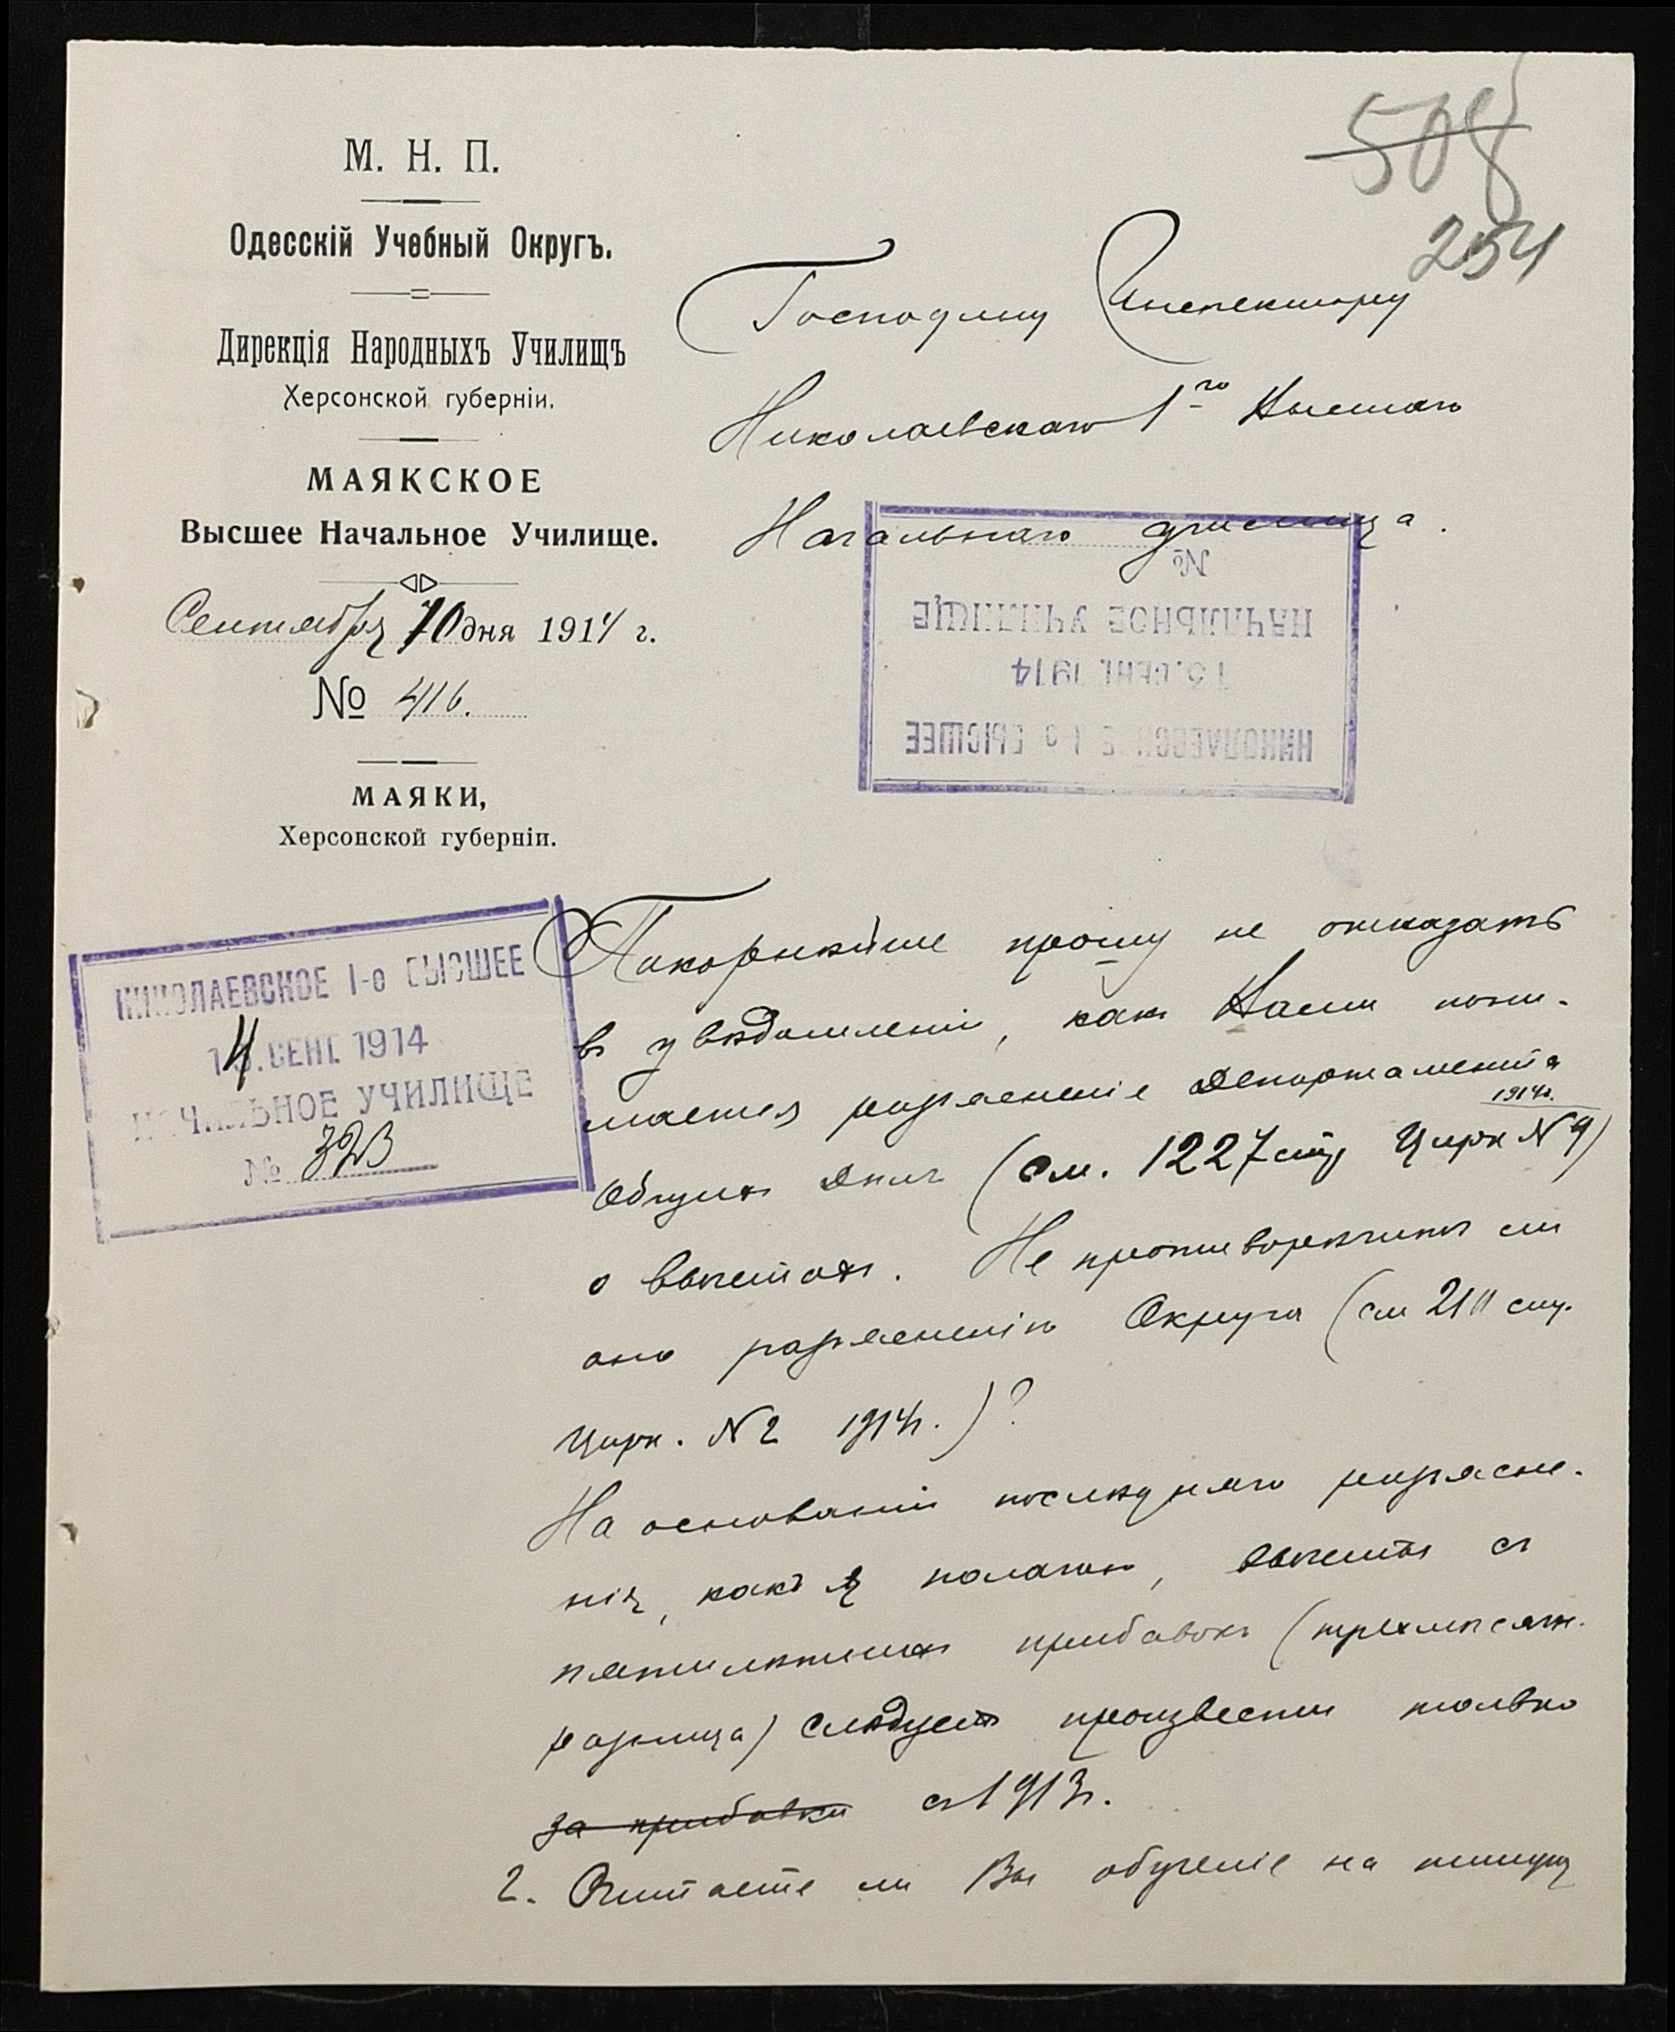 508
254
М. Н. П.
Одесскій Учебный Округъ.
Дирекція Народныхъ Училищъ
Херсонской губерніи.
МАЯКСКОЕ
Высшее Начальное Училище.
Сентября 10 дня 1914 г.
№ 416.
МАЯКИ,
Херсонской губерніи.
Господину Инспектору
Николаевскаго 1го Высшаго
Начальнаго училища.
НИКОЛАЕВСКОЕ 1-е ВЫСШЕЕ
15. СЕНТ. 1914
НАЧАЛЬНОЕ УЧИЛИЩЕ
№
НИКОЛАЕВСКОЕ 1-е ВЫСШЕЕ
14. СЕНТ. 1914
НАЧАЛЬНОЕ УЧИЛИЩЕ
№ 323
Покорнѣйше прошу не отказать
въ увѣдомленіи, какъ Вами пони-
мается разъясненіе Департамента
Общихъ Дѣлъ (см. 1227 стр Цирк № 9 1914г.)
о вычетахъ. Не противорѣчитъ ли
оно разъясненію Округа (см 211 стр.
Цирк. № 2 1914г.)?
На основаніи послѣдняго разъясне-
нія, какъ я полагаю, вычеты съ
пятилѣтнихъ прибавокъ (трехмѣсячн.
разница) слѣдуетъ произвести только
за прибавки съ 1913г.
2. Считаете ли Вы обученіе на